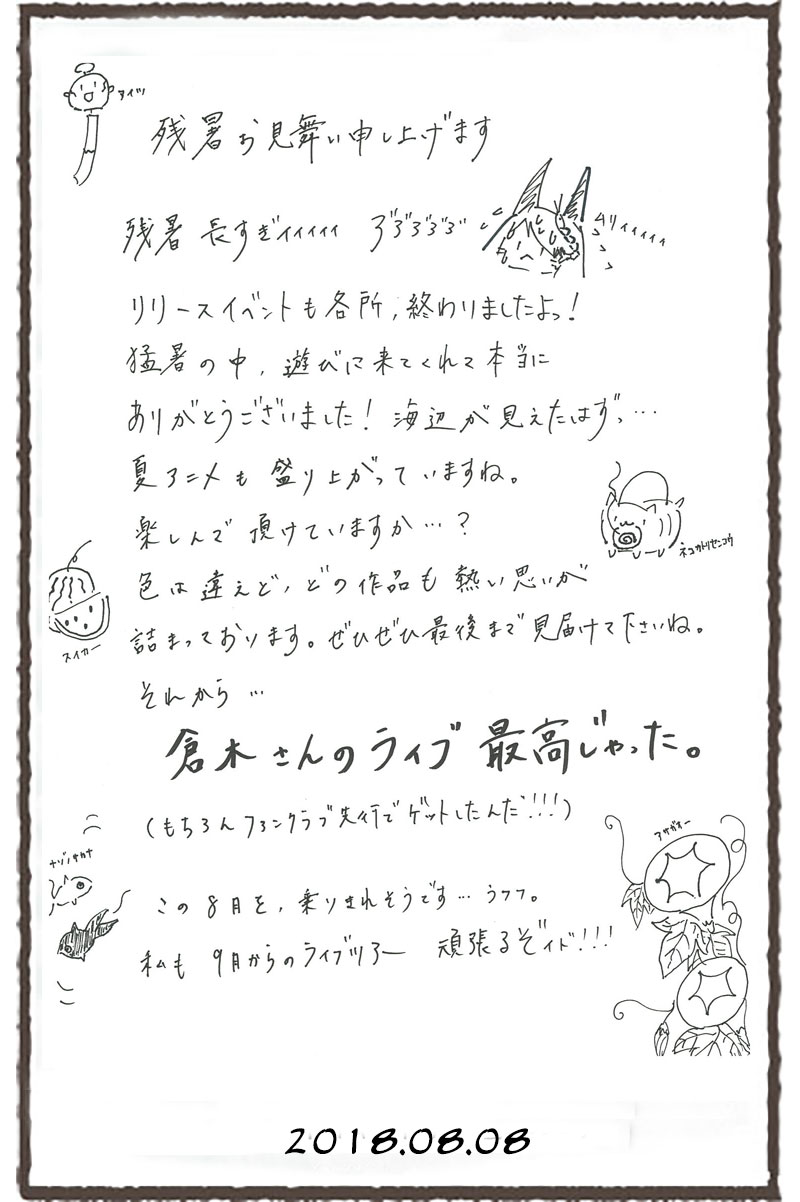 アイツ
残暑お見舞い申し上げます
残暑 長すぎィィィィィ ヺヺヺヺヺ
ムリィィィィィ
リリースイベントも各所,終わりましたよっ!
猛暑の中, 遊びに来てくれて本当に
ありがとうございました! 海辺が見えたはずっ…
夏アニメも盛り上がっていますね。
楽しんで頂けていますか…?
ネコカトリセンコウ
色は違えど, どの作品も熱い思いが
スイカー
詰まっております。ぜひぜひ最後まで見届けて下さいね。
それから…
倉木さんのライブ 最高じゃった。
(もちろんファンクラブ先行でゲットしたんだ!!!)
アサガオー
ナゾノサカナ
この8月を, 乗りきれそうです… うフフ。
私も 9月からのライブツアー 頑張るぞィド!!!
2018.08.08